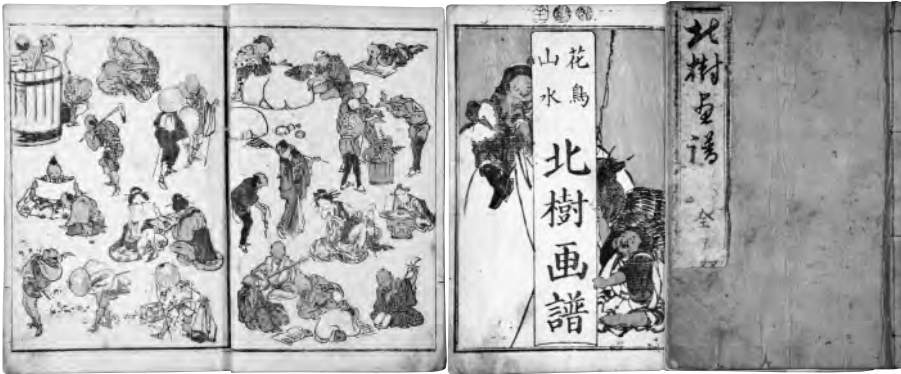 花鳥
山水
北樹画譜
北樹画譜
全